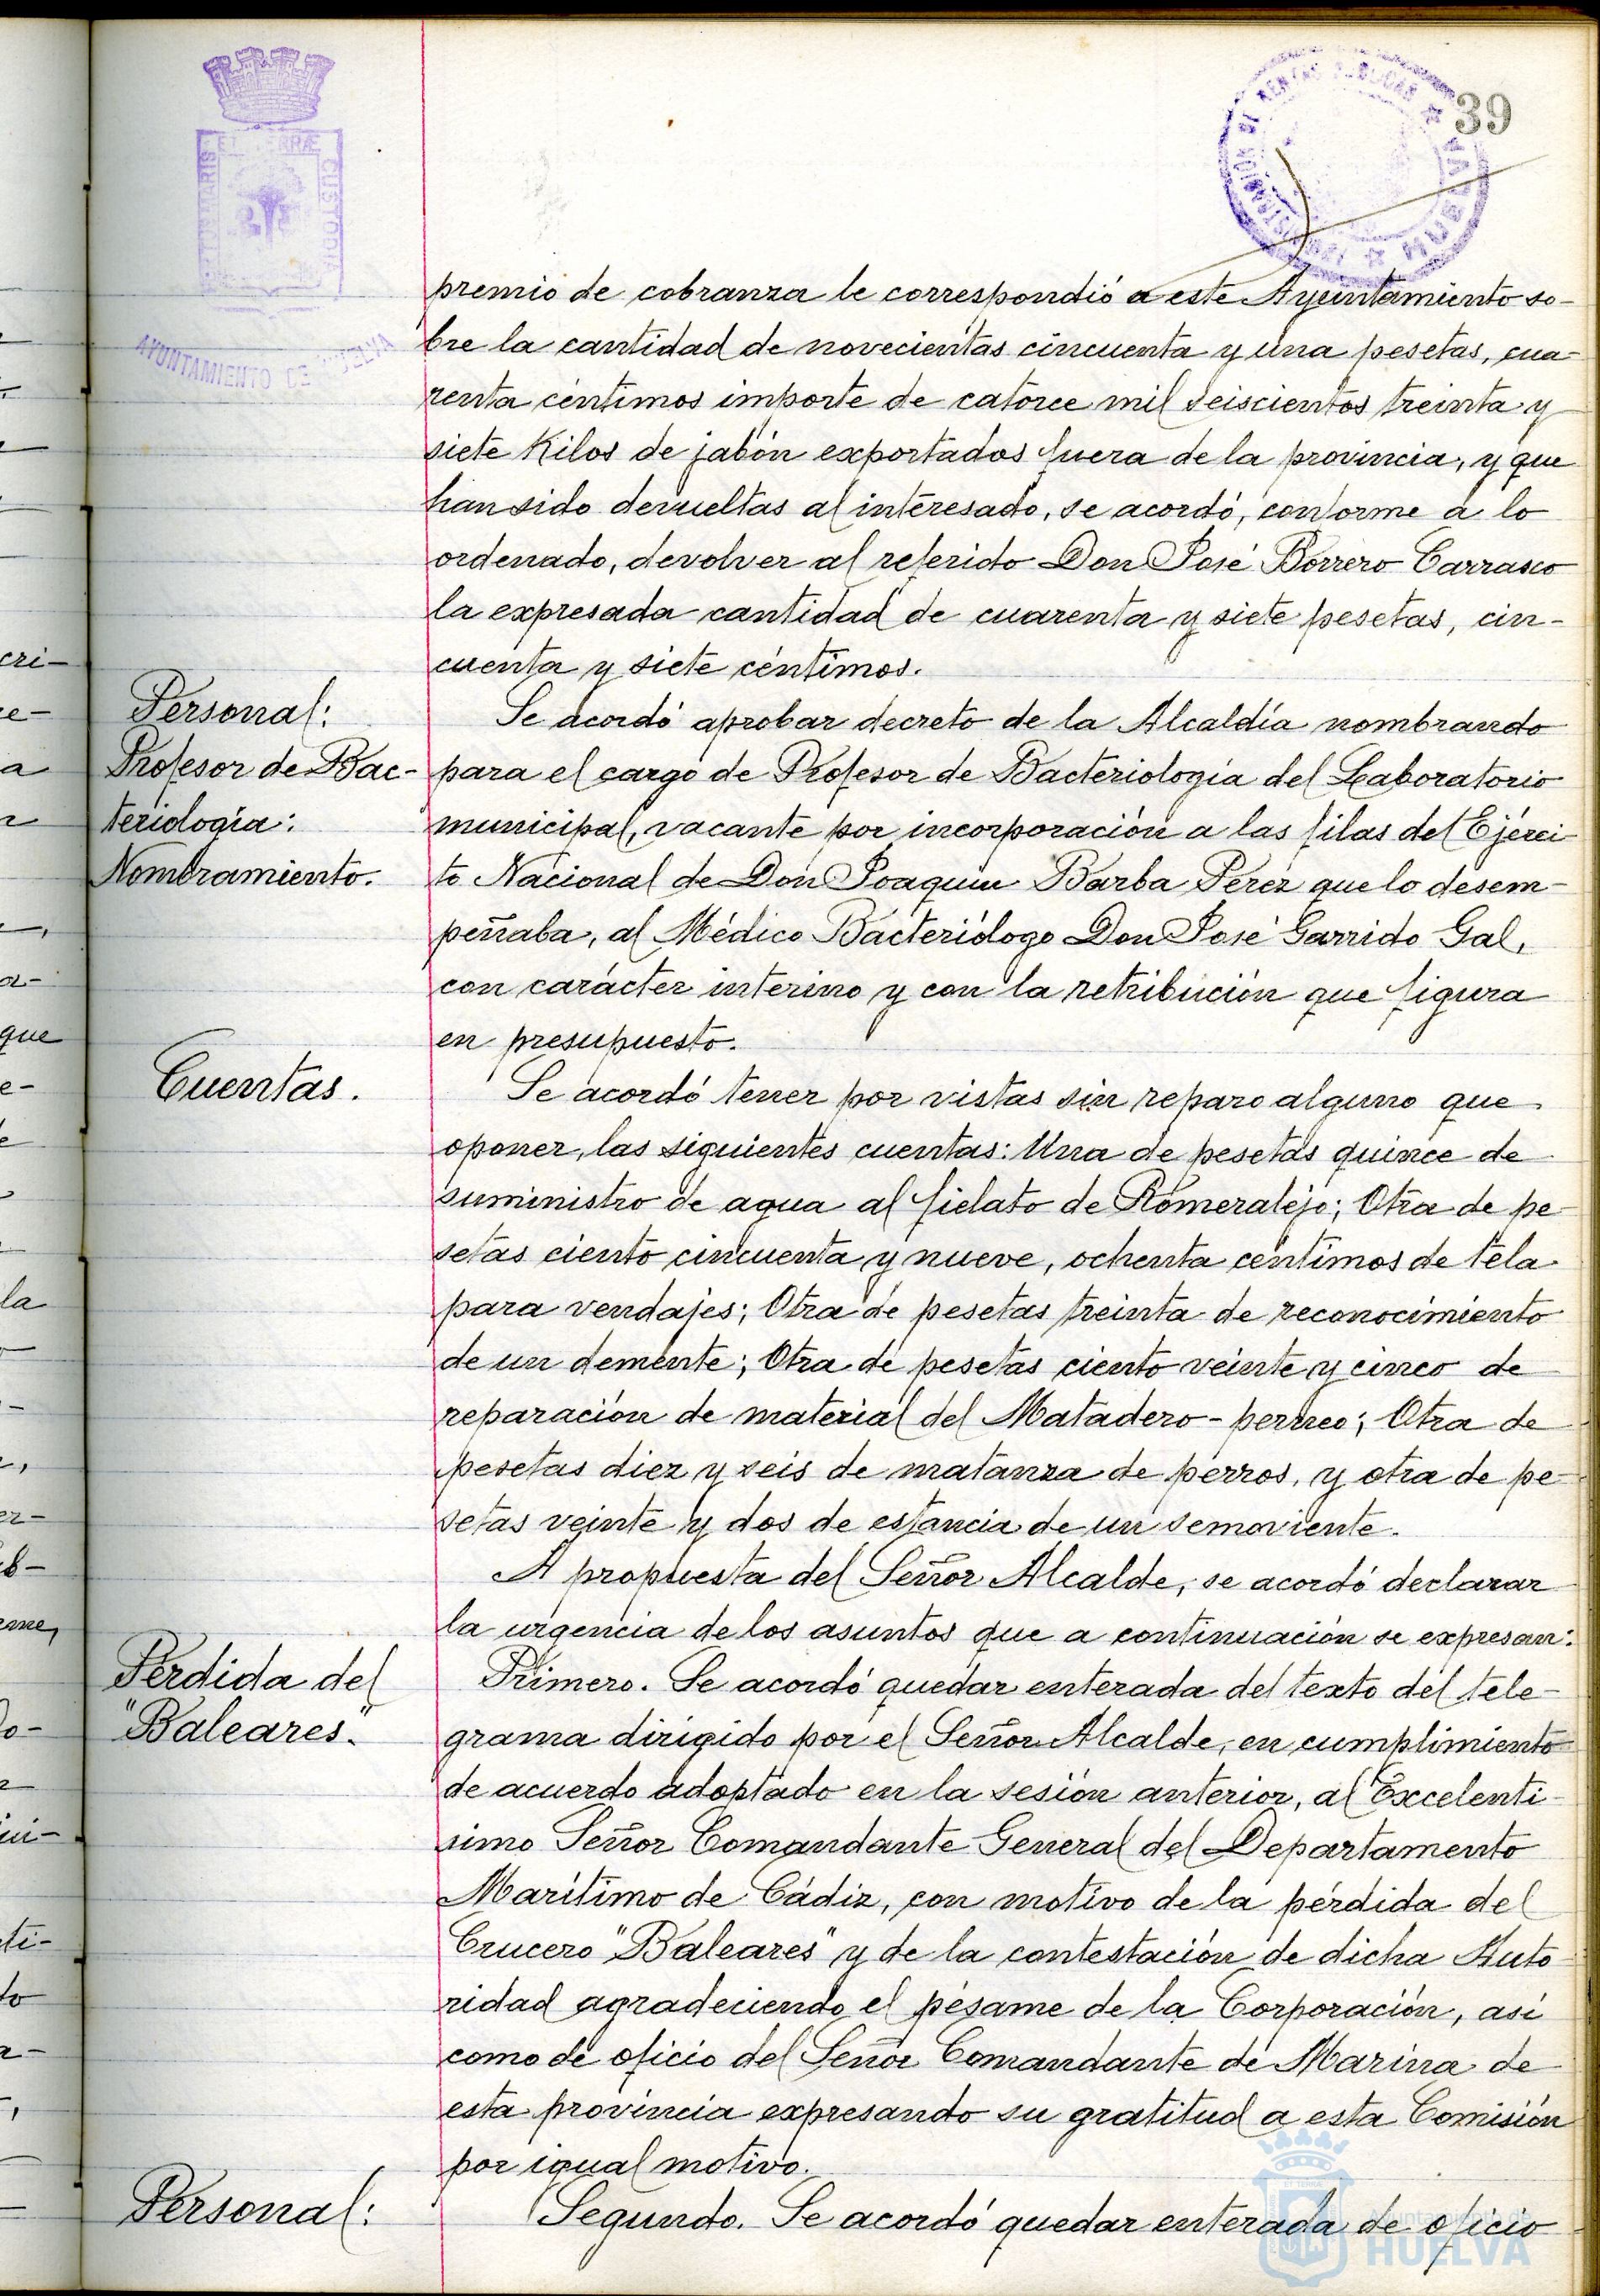 39
premio de cobranza le correspondió a este Ayuntamiento so-
bre la cantidad de novecientas cincuenta y una pesetas, cua-
renta céntimos importe de catorce mil seiscientos treinta y
siete Kilos de jabón exportados fuera de la provincia, y que
han sido devueltas al interesado, se acordó, conforme a lo
ordenado, devolver al referido Don José Borrero Carrasco
la expresada cantidad de cuarenta y siete pesetas, cin-
cuenta y siete céntimos.
Personal:
Profesor de Bac-
teriología:
Nombramiento.
Se acordó aprobar decreto de la Alcaldía nombrando
para el cargo de Profesor de Bacteriología del Laboratorio
municipal, vacante por incorporación a las filas del Ejérci-
to Nacional de Don Joaquín Barba Pérez que lo desem-
peñaba, al Médico Bacteriólogo Don José Garrido Gal,
con carácter interino y con la retribución que figura
en presupuesto.
Cuentas.
Se acordó tener por vistas sin reparo alguno que
oponer, las siguientes cuentas: Una de pesetas quince de
suministro de agua al fielato de Romeralejo; Otra de pe-
setas ciento cincuenta y nueve, ochenta centimos de tela
para vendajes; Otra de pesetas treinta de reconocimiento
de un demente; Otra de pesetas ciento veinte y cinco de
reparación de material del Matadero-perneo; Otra de
pesetas diez y seis de matanza de perros, y otra de pe-
setas veinte y dos de estancia de un semoviente.
A propuesta del Señor Alcalde, se acordó declarar
la urgencia de los asuntos que a continuación se expresan:
Pérdida del
"Baleares".
Primero. Se acordó quedar enterada del texto del tele-
grama dirigido por el Señor Alcalde, en cumplimiento
de acuerdo adoptado en la sesión anterior, al Excelentí-
simo Señor Comandante General del Departamento
Marítimo de Cádiz, con motivo de la pérdida del
Crucero "Baleares" y de la contestación de dicha Auto-
ridad agradeciendo el pésame de la Corporación, así
como de oficio del Señor Comandante de Marina de
esta provincia expresando su gratitud a esta Comisión
por igual motivo.
Personal:
Segundo. Se acordó quedar enterada de oficio
AYUNTAMIENTO DE HUELVA
Ayuntamiento de
HUELVA